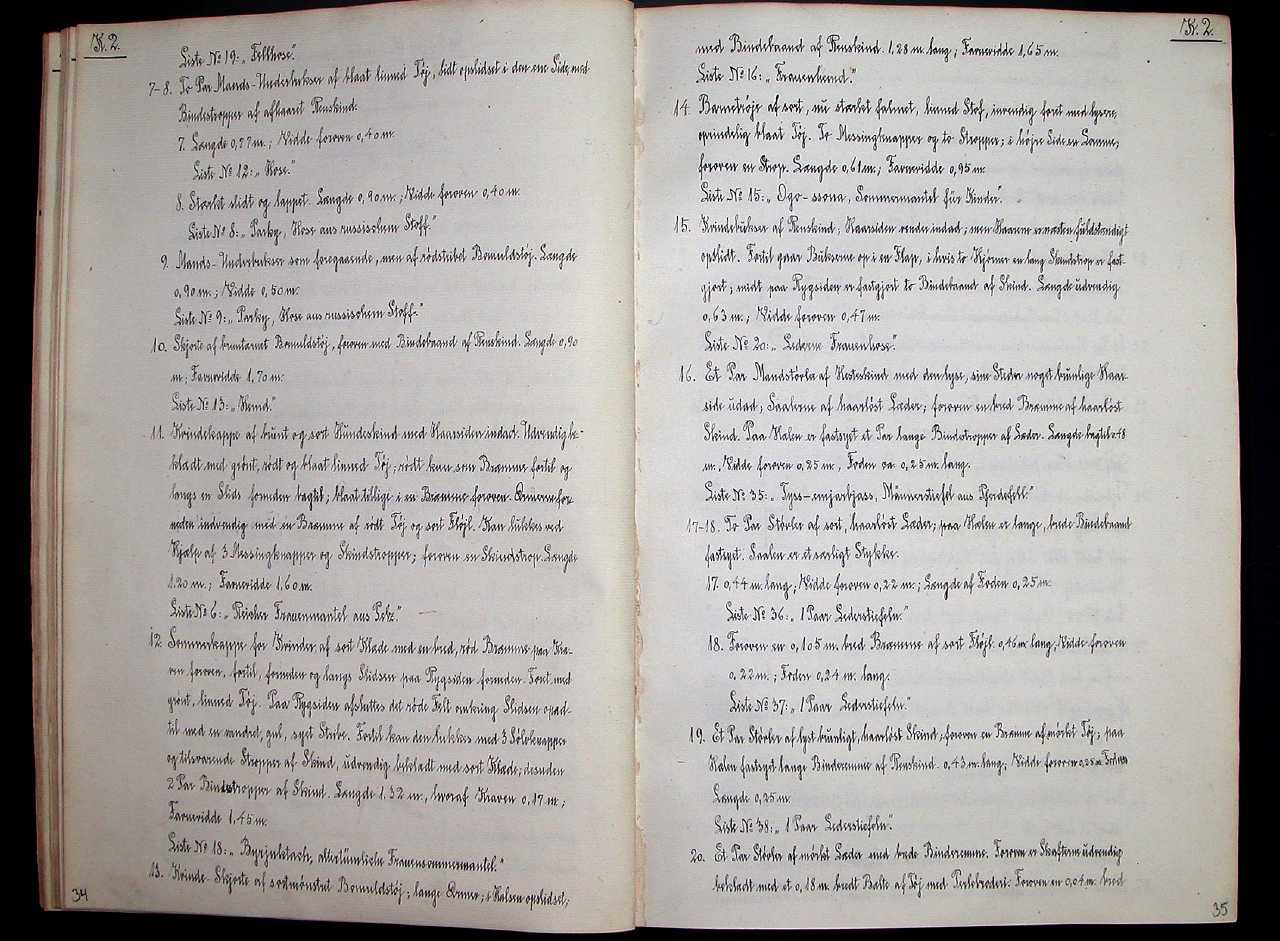 K. 2.
Liste № 19: „Fellhose."
7-8. To Par Mands-Underbukser af blaat linned Tøj, lidt opslidset i den ene Side, med
Bindestropper af afhaaret Renskind.
7. Længde 0,77 m.; Vidde foroven 0,40 m.
Liste № 12: „Hose."
8. Stærkt slidt og lappet. Længde 0,90 m.; Vidde foroven 0,40 m.
Liste № 8: „Parky, Hose aus russischem Stoff."
9. Mands-Underbukser som foregaaende, men af rødstribet Bomuldstøj. Længde
0,90 m.; Vidde 0,50 m.
Liste № 9: „Parky, Hose aus russischem Stoff."
10. Skjorte af bruntærnet Bomuldstøj, foroven med Bindebaand af Renskind. Længde 0,90
m.; Favnevidde 1,70 m.
Liste № 13: „Hemd."
11. Kvindekappe af brunt og sort Hundeskind med Haarsiden indad. Udvendig be-
klædt med grønt, rødt og blaat linned Tøj; rødt kun som Bræmme fortil og
langs en Slids forneden bagtil; blaat tillige i en Bræmme foroven. Ærmerne for-
neden indvendig med en Bræmme af rødt Tøj og sort Fløjl. Kan lukkes ved
Hjælp af 3 Messingknapper og Skindstropper; foroven en Skindstrop. Længde
1.20 m.; Favnevidde 1.60 m.
Liste № 6: „Reicher Frauenmantel aus Pelz."
12. Sommerkappe for Kvinder af sort Klæde med en bred, rød Bræmme paa Kra-
ven foroven, fortil, forneden og langs Slidsen paa Rygsiden forneden. Foret med
grønt, linned Tøj. Paa Rygsiden afsluttes det røde Felt omkring Slidsen opad-
til med en vandret, gul, syet Stribe. Fortil kan den lukkes med 3 Sølvknapper
og tilsvarende Stropper af Skind, udvendig beklædt med sort Klæde; desuden
2 Par Bindestropper af Skind. Længde 1.32 m., hvoraf Kraven 0,17 m.;
Favnevidde 1.45 m.
Liste № 18: „Byrjuktach, altertümliche Frauensommermantel."
13. Kvinde-Skjorte af sortmønstret Bomuldstøj; lange Ærmer; i Halsen opslidset;
34
K. 2.
med Bindebaand af Renskind. 1,28 m. lang; Favnevidde 1,65 m.
Liste № 16: „Frauenhemd."
14. Børnetrøje af sort, nu stærkt falmet, linned Stof, invendig foret med lysere,
oprindelig blaat Tøj. To Messingknapper og to Stropper; i højre Side en Lomme;
foroven en Strop. Længde 0,61 m.; Favnevidde 0,95 m.
Liste № 15: „Ogo-ssona, Sommermantel für Kinder".
15. Kvindebukser af Renskind; Haarsiden vendes indad; men Haarene er næsten fuldstændigt
opslidt. Fortil gaar Bukserne op i en Flap, i hvis to Hjørner en lang Skindstrop er fast-
gjort; midt paa Rygsiden er fastgjort to Bindebaand af Skind. Længde udvendig
0,63 m.; Vidde foroven 0,47 m.
Liste № 20: „Lederne Frauenhose".
16. Et Par Mandstøvler af Hesteskind med den lyse, sine Steder noget brunlige Haar-
side udad; Saalerne af haarløst Læder; foroven en bred Bræmme af haarløst
Skind. Paa Hælen er fastsyet et Par lange Bindestropper af Læder. Længde bagtil 0.48
m.; Vidde foroven 0,25 m., Foden ca. 0,25 m. lang.
Liste № 35: „Tyss-emjarbjass, Männerstiefel aus Pferdefell."
17-18. To Par Støvler af sort, haarløst Læder; paa Hælen er lange, brede Bindebaand
fastsyet. Saalen er et særligt Stykke.
17. 0,44 m. lang; Vidde foroven 0,22 m.; Længde af Foden 0,25 m.
Liste № 36: „1 Paar Lederstiefeln."
18. Foroven en 0,105 m. bred Bræmme af sort Fløjl. 0,46 m. lang; Vidde foroven
0.22 m.; Foden 0,24 m. lang.
Liste № 37: „1 Paar Lederstiefeln."
19. Et Par Støvler af lyst brunligt, haarløst Skind; foroven en Bræmme af mørkt Tøj; paa
Hælen fastsyet lange Bindremme af Renskind. 0,43 m. lang; Vidde foroven 0,25 m. Fodens
Længde 0,25 m.
Liste № 38: „1 Paar Lederstiefeln".
20. Et Par Støvler af mørkt Læder med brede Bindremme. Foroven er Skafterne udvendig
beklædt med et 0,18 m. bredt Bælte af Tøj med Perlebroderi. Foroven en 0,04 m. bred
35